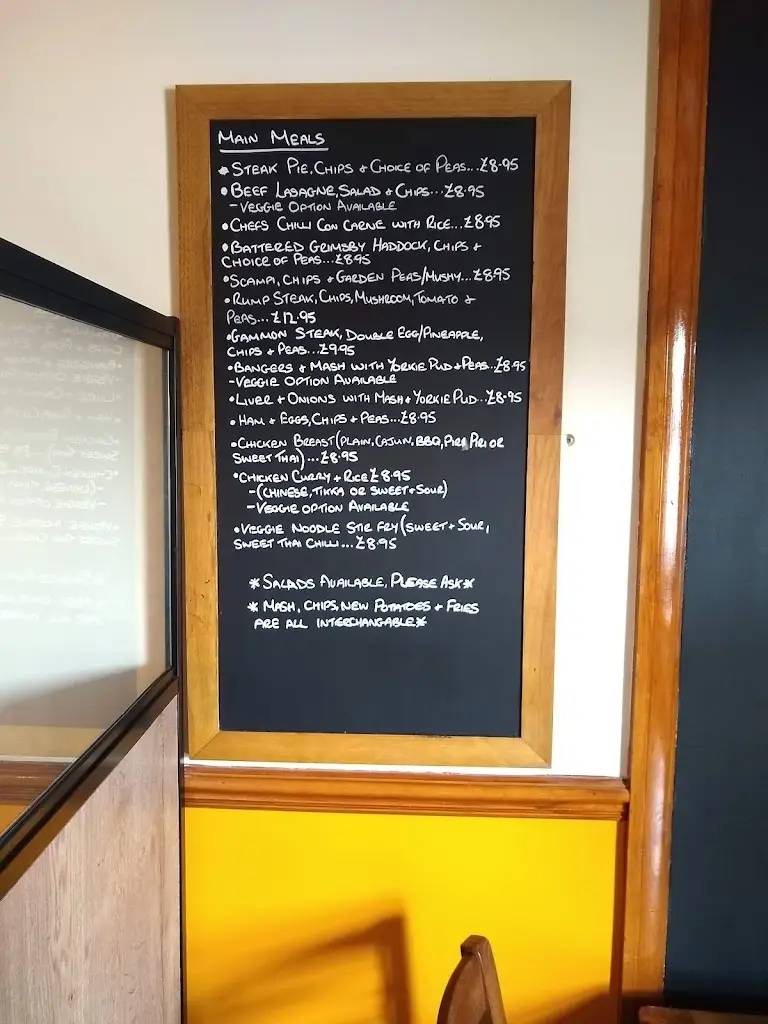 MAIN MEALS
• STEAK PIE, CHIPS + CHOICE OF PEAS...£8.95
• BEEF LASAGNE, SALAD + CHIPS...£8.95
- VEGGIE OPTION AVAILABLE
• CHEFS CHILLI CON CARNE WITH RICE...£8.95
• BATTERED GRIMSBY HADDOCK, CHIPS +
CHOICE OF PEAS...£8.95
• SCAMPI, CHIPS + GARDEN PEAS/MUSHY...£8.95
• RUMP STEAK, CHIPS, MUSHROOM, TOMATO +
PEAS...£12.95
• GAMMON STEAK, DOUBLE EGG/PINEAPPLE,
CHIPS + PEAS...£9.95
• BANGERS + MASH WITH YORKIE PUD + PEAS...£8.95
- VEGGIE OPTION AVAILABLE
• LIVER + ONIONS WITH MASH + YORKIE PUD...£8.95
• HAM + EGGS, CHIPS + PEAS...£8.95
• CHICKEN BREAST (PLAIN, CAJUN, BBQ, PIRI PIRI OR
SWEET THAI)...£8.95
• CHICKEN CURRY + RICE £8.95
- (CHINESE, TIKKA OR SWEET + SOUR)
- VEGGIE OPTION AVAILABLE
• VEGGIE NOODLE STIR FRY (SWEET + SOUR,
SWEET THAI CHILLI...£8.95
* SALADS AVAILABLE, PLEASE ASK *
* MASH, CHIPS, NEW POTATOES + FRIES
ARE ALL INTERCHANGABLE *